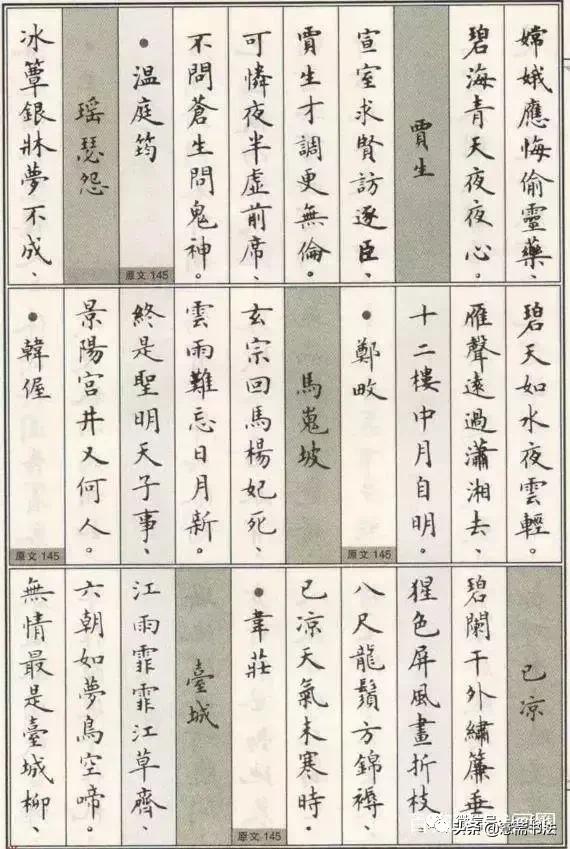 嫦娥應悔偷靈藥、
碧海青天夜夜心。
賈生
宣室求賢訪逐臣、
賈生才調更無倫。
可憐夜半虛前席、
不問蒼生問鬼神。
●温庭筠
原文 145
瑶瑟怨
冰簟銀牀夢不成、
碧天如水夜雲輕。
雁聲遠過瀟湘去、
十二樓中月自明。
●鄭畋
原文 145
馬嵬坡
玄宗回馬楊妃死、
雲雨難忘日月新。
終是聖明天子事、
景陽宫井又何人。
●韓偓
原文 145
已凉
碧闌干外繡簾垂
猩色屏風畫折枝
八尺龍鬚方錦褥、
已凉天氣未寒時。
●韋莊
原文 145
臺城
江雨霏霏江草齊、
六朝如夢鳥空啼。
無情最是臺城柳、
头条
书法